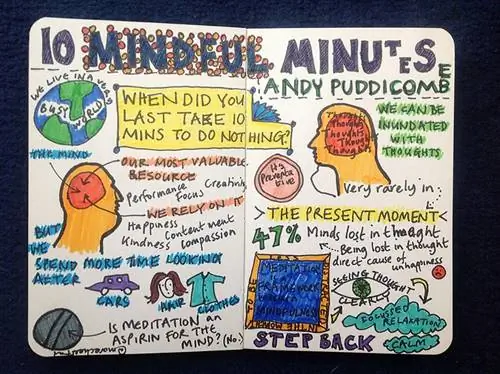 10 MINDFUL MINUTES
ANDY PUDDICOMBE
WE LIVE IN A VERY
BUSY WORLD
WHEN DID YOU
LAST TAKE 10
MINS TO DO NOTHING?
THE MIND
OUR MOST VALUABLE
RESOURCE
Performance Creativity
Focus
WE RELY ON IT
Happiness Contentment
Kindness Compassion
BUT
WE
SPEND MORE TIME LOOKING
AFTER
CARS HAIR CLOTHES
IS MEDITATION AN
ASPIRIN FOR THE
MIND? (No.)
It's
Preventa
tive
Thoughts
Thoughts
Thoughts
Thoughts
Thoughts
WE CAN BE
INUNDATED
WITH
THOUGHTS
Very rarely in
THE PRESENT MOMENT
47% Minds lost in thought
Being lost in thought
direct cause of
unhappiness
MEDITATION
FRAMEWORK
MINDFULNESS
SEEING THOUGHT
CLEARLY
FOCUSSED
RELAXATION
CALM
STEP BACK